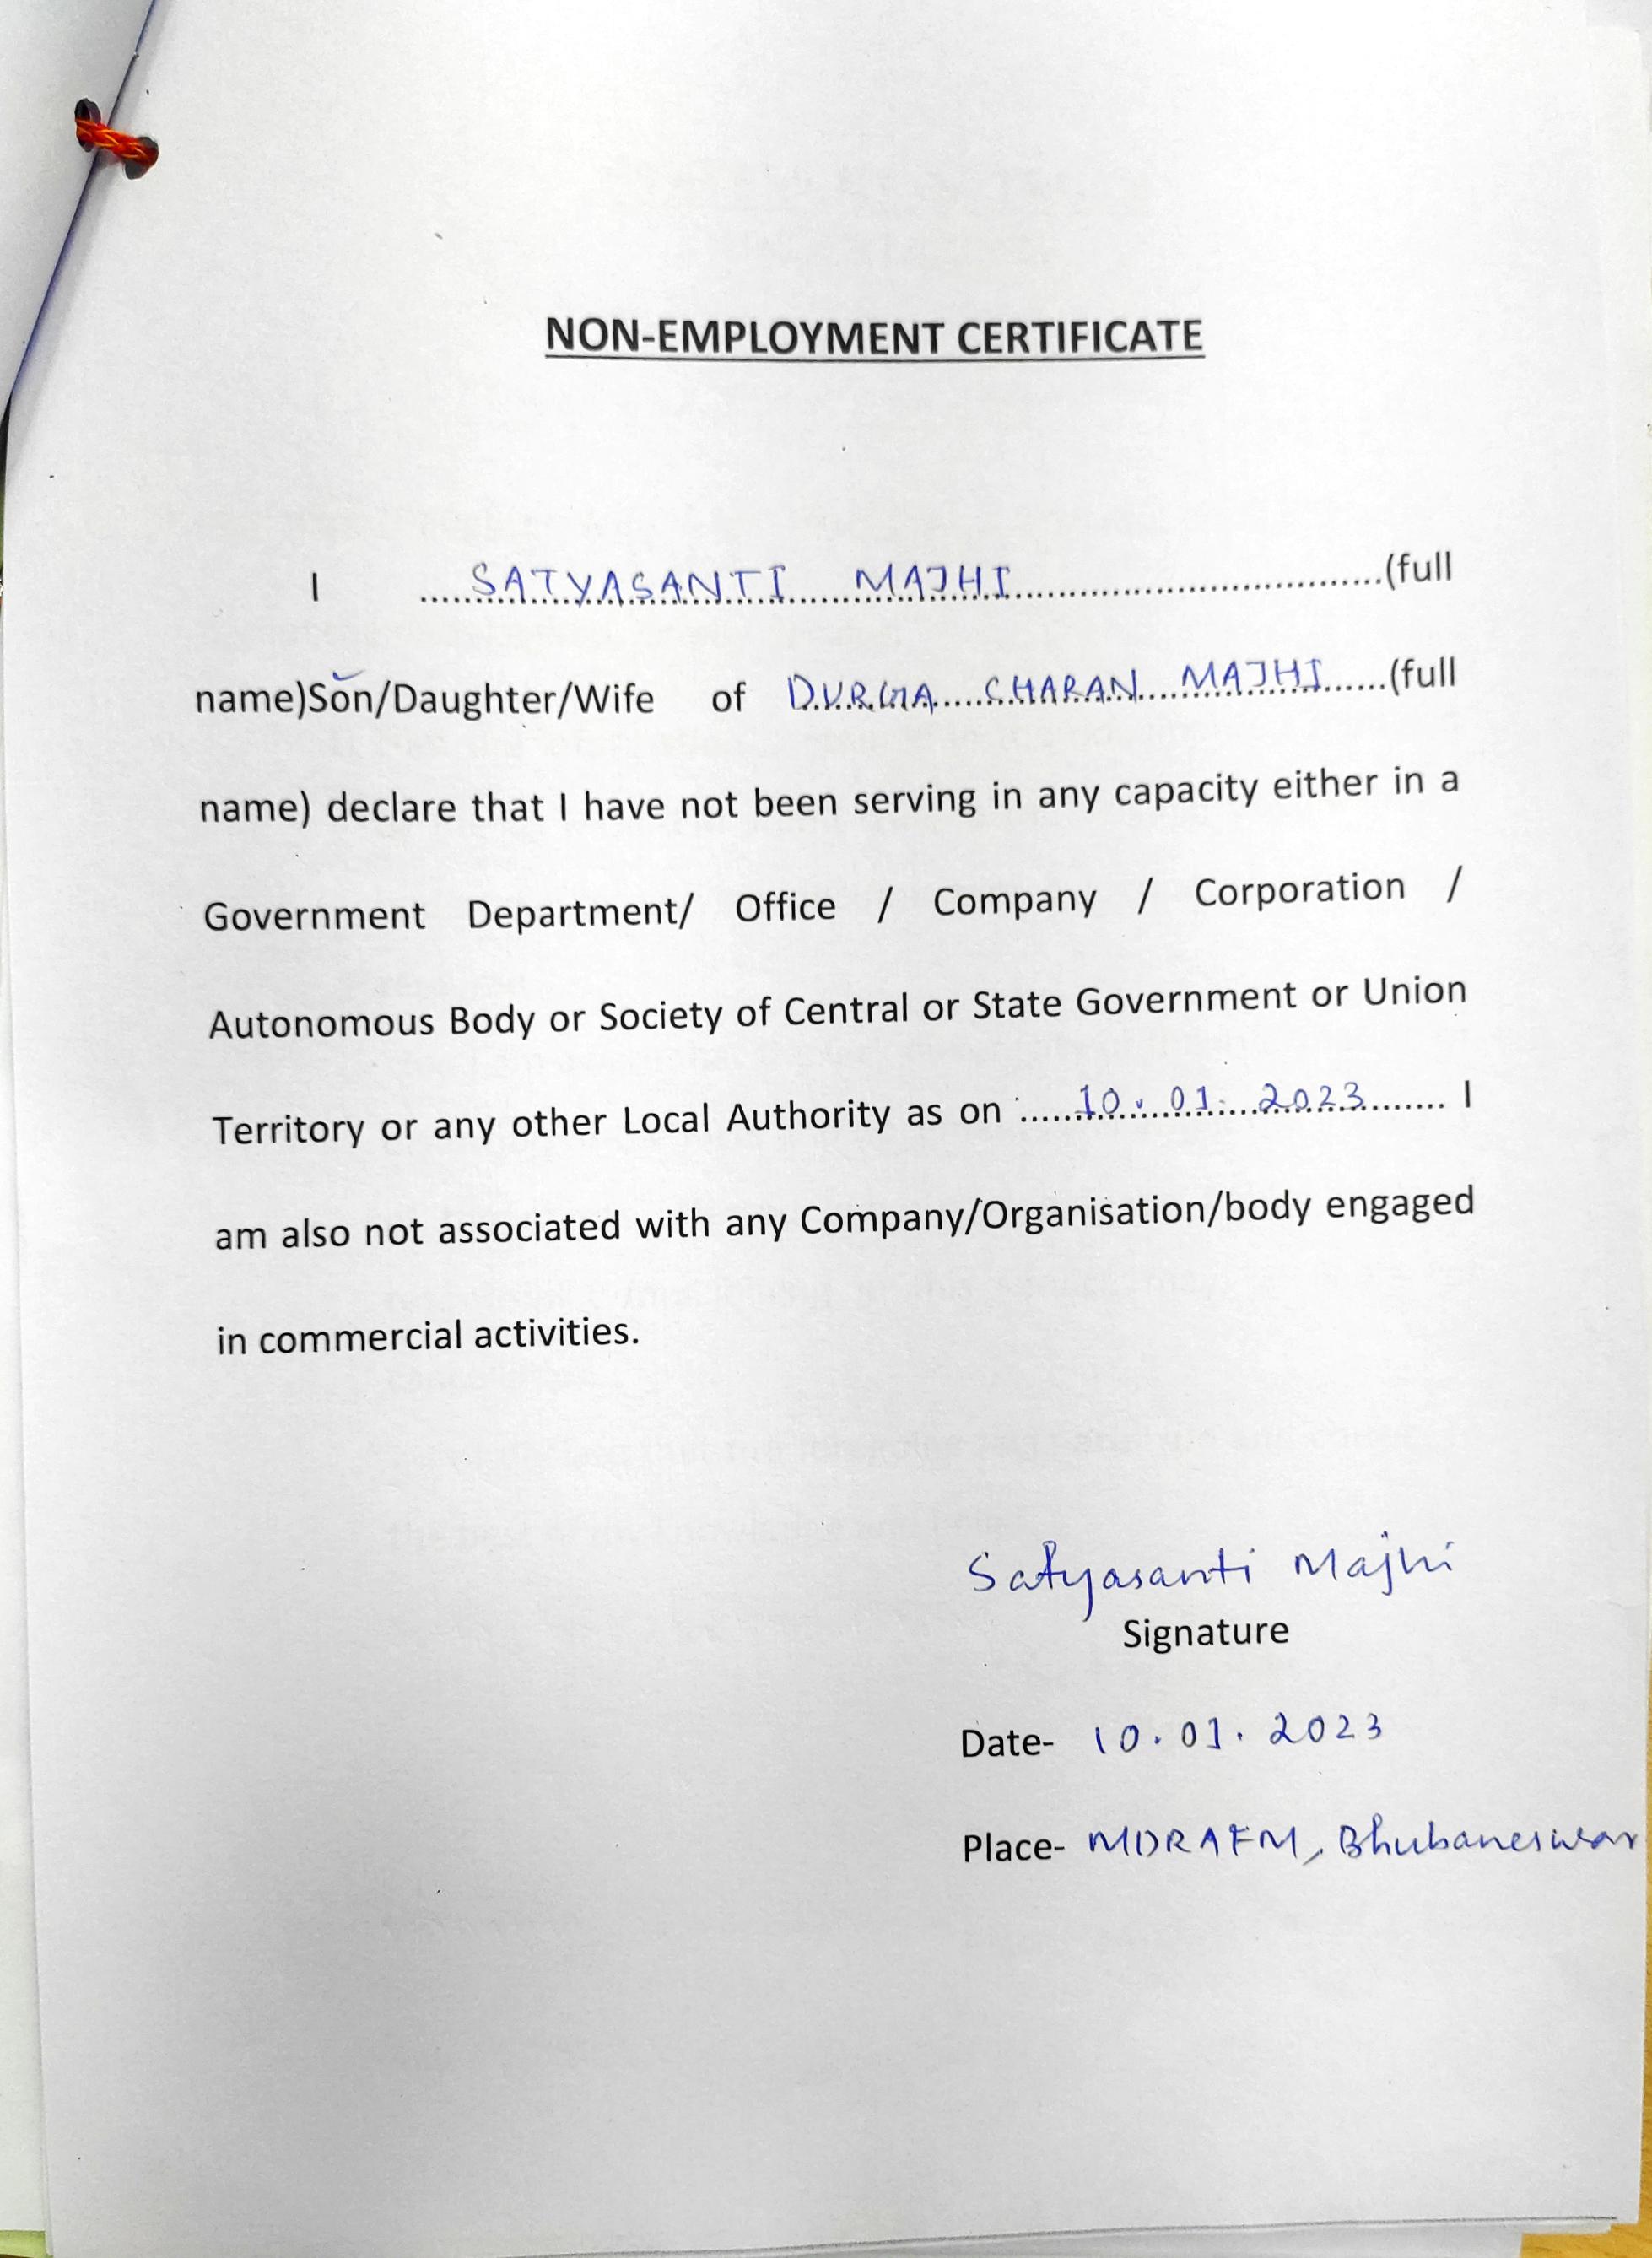 NON-EMPLOYMENT CERTIFICATE
I ......SATYASANTI MAJHI..............................(full
name)Son/Daughter/Wife of DURGA CHARAN MAJHI......(full
name) declare that I have not been serving in any capacity either in a
Government Department/ Office / Company / Corporation /
Autonomous Body or Society of Central or State Government or Union
Territory or any other Local Authority as on ......10.01.2023........ I
am also not associated with any Company/Organisation/body engaged
in commercial activities.
Satyasanti Majhi
Signature
Date- 10.01.2023
Place- MDRAFM, Bhubaneswar